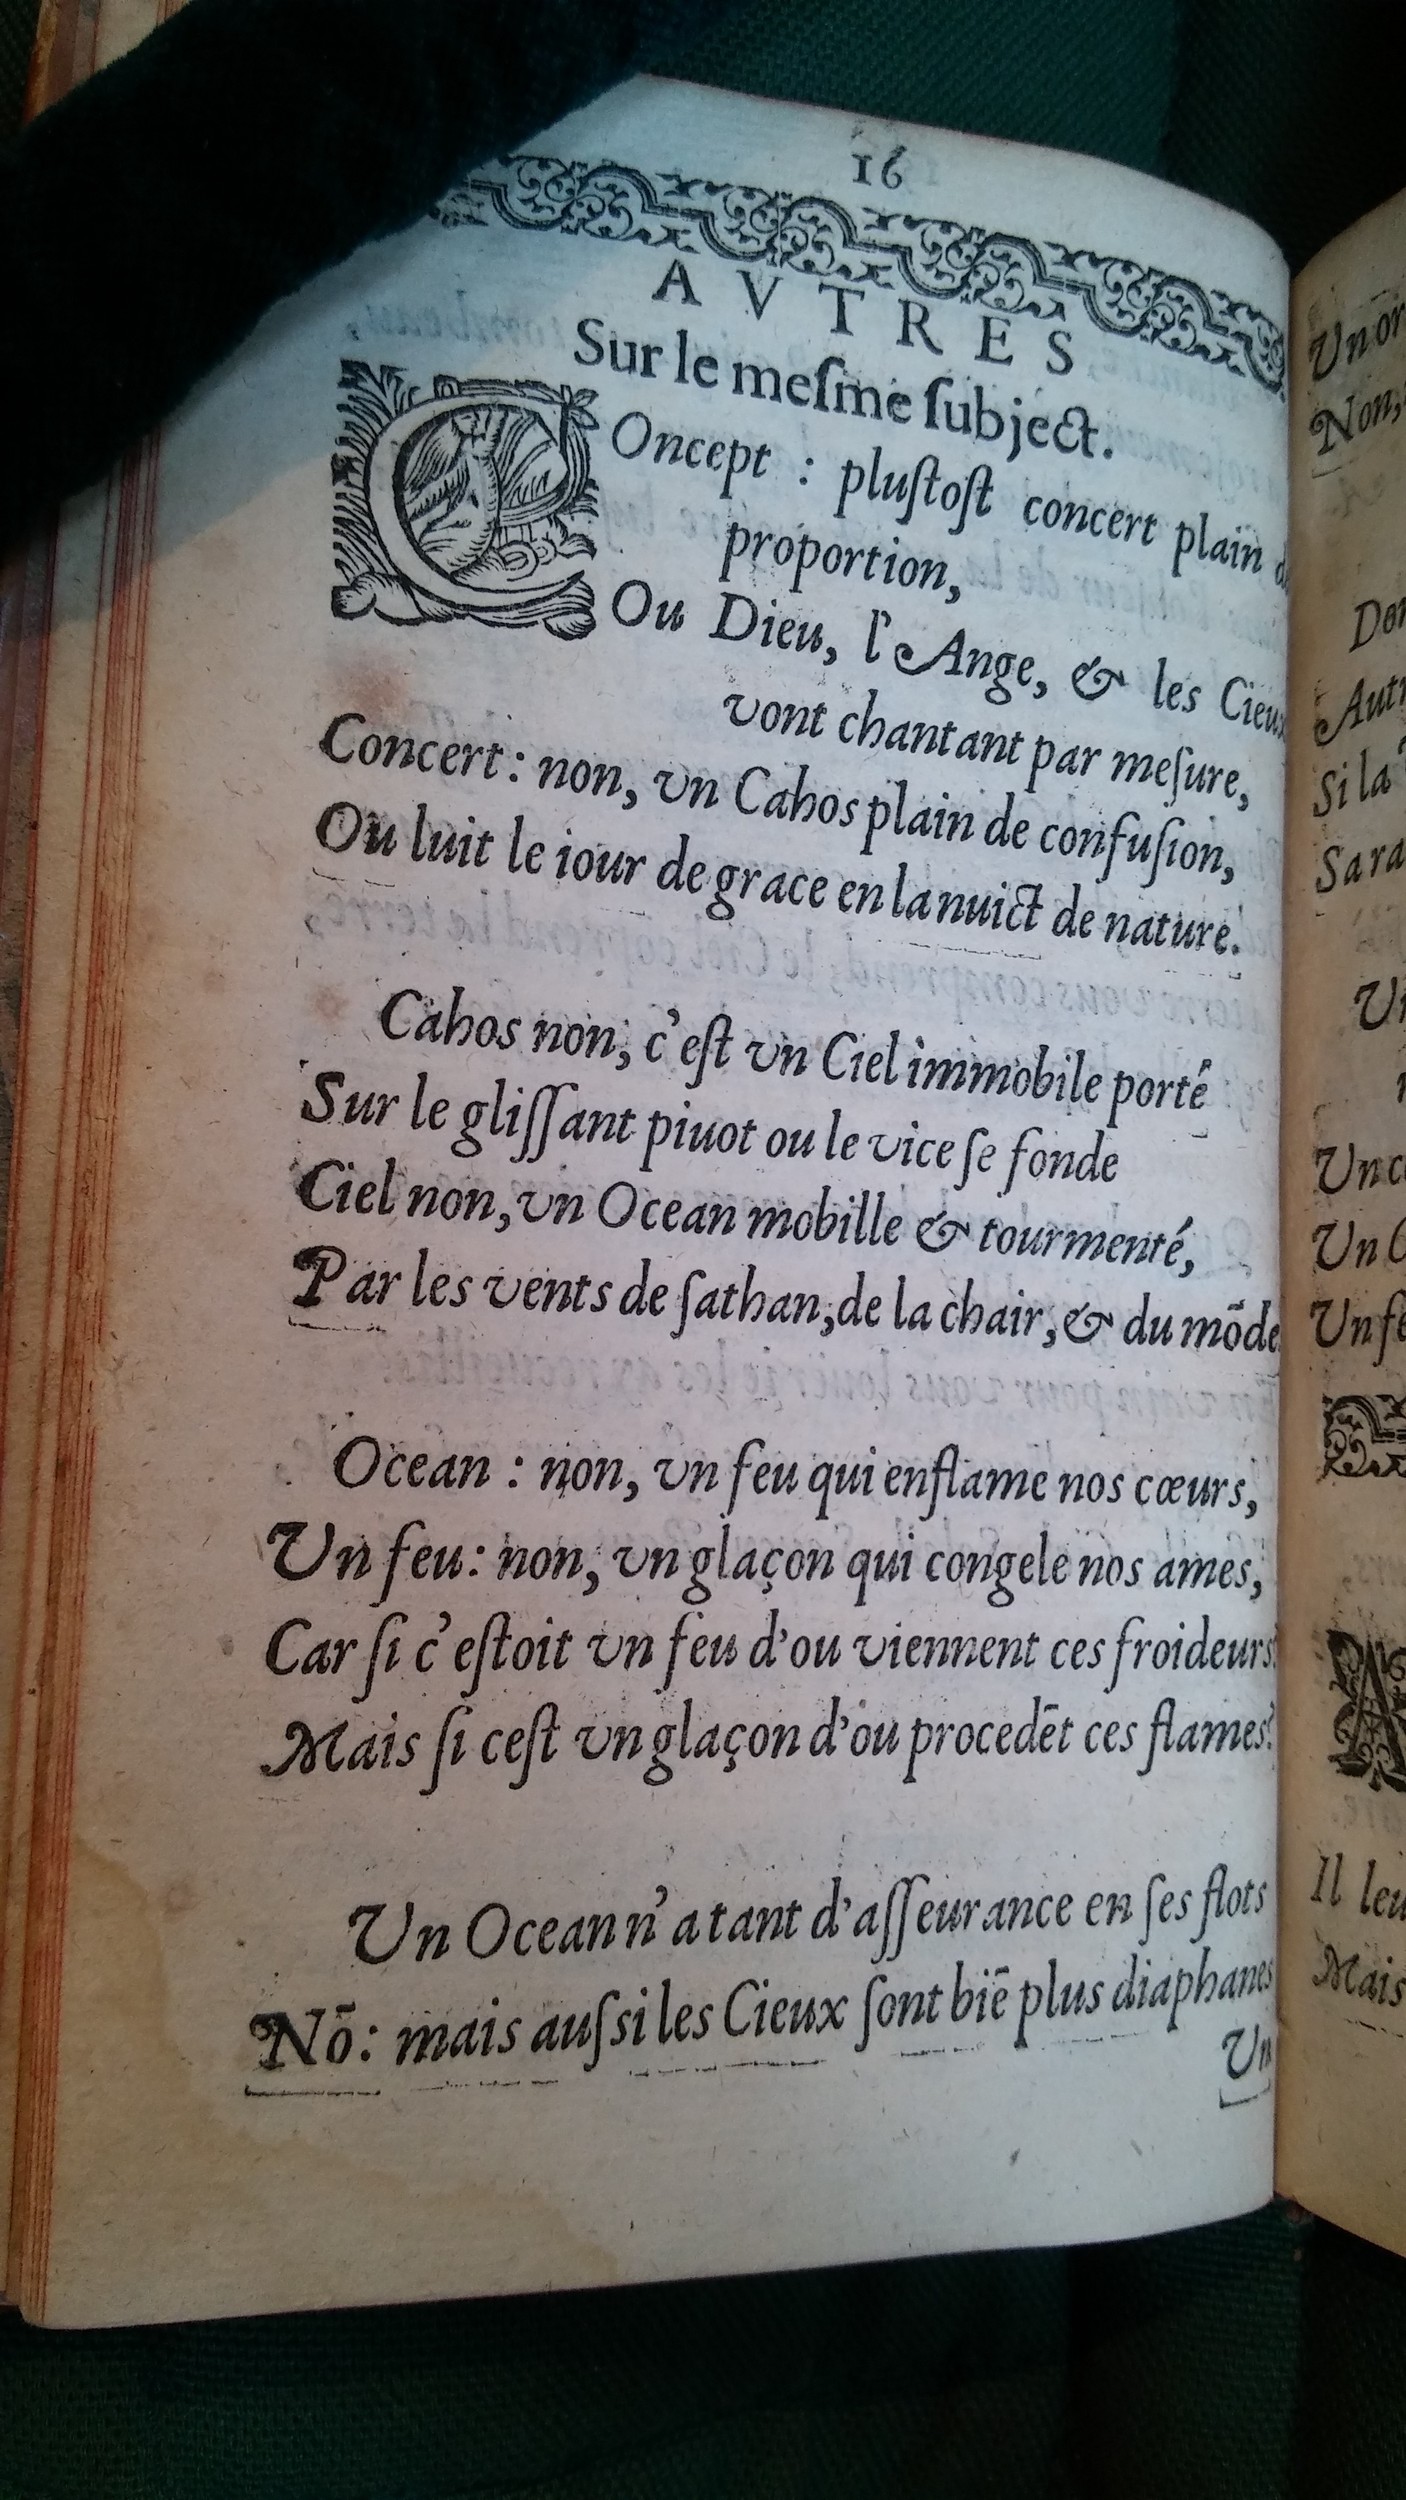 16
AVTRES
Sur le meſme ſubject.
COncept : pluſtoſt concert plain
proportion,
Ou Dieu, l'Ange, & les Cieux
vont chantant par meſure,
Concert : non, vn Cahos plain de confuſion,
Ou luit le iour de grace en la nuict de nature.
Cahos non, c'eſt vn Ciel immobile porté
Sur le gliſſant piuot ou le vice ſe fonde
Ciel non, vn Ocean mobille & tourmenté,
Par les vents de ſathan, de la chair, & du mõde
Ocean : non, vn feu qui enflame nos cœurs,
Un feu : non, vn glaçon qui congele nos ames,
Car ſi c'eſtoit vn feu d'ou viennent ces froideurs
Mais ſi ceſt vn glaçon d'ou procedẽt ces flames?
Un Ocean n'a tant d'aſſeurance en ſes flots
Nõ : mais auſsi les Cieux ſont biẽ plus diaphanes
Un
Un or
Non,
Autr
Si la
Sara
Un
Un fe
Il leu
Mais